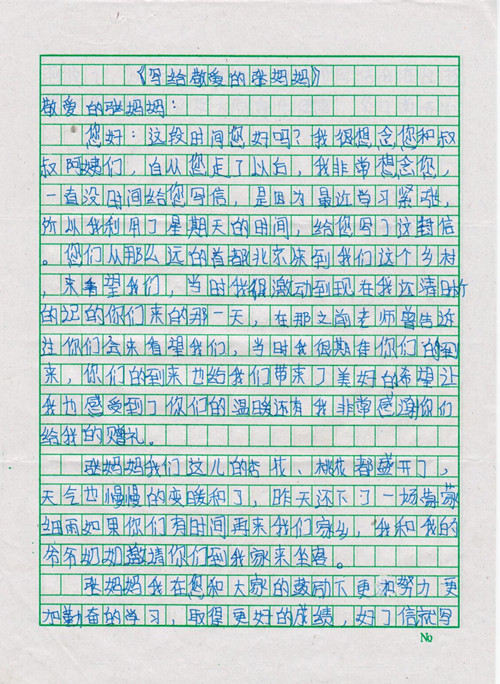 《写给敬爱的张妈妈》
敬爱的张妈妈：
您好：这段时间您好吗？我很想念您和叔
叔阿姨们，自从您走了以白，我非常想念您，
一直没时间给您写信，是因为最近学习紧张，
所以我利用了星期天的时间，给您写了这封信
。您们从那么远的首都北京来到我们这个乡村
，来看望我们，当时我很激动到现在我还清晰
的记的你们来的那一天，在那之前老师曾告诉
过你们会来看望我们，当时我很期待你们的到
来，你们的到来也给我们带来了美好的希望让
我也感受到了你们的温暖还有我非常感谢你们
给我的赠礼。
张妈妈我们这儿的杏花、桃花都盛开了，
天气也慢慢的变暖和了，昨天还下了一场蒙蒙
细雨如果你们有时间再来我们家乡，我和我的
爷爷奶奶邀请你们到我家来坐客。
张妈妈我在您和大家的鼓励下更和努力更
加勤奋的学习，取得更好的成绩，好了信就写
No